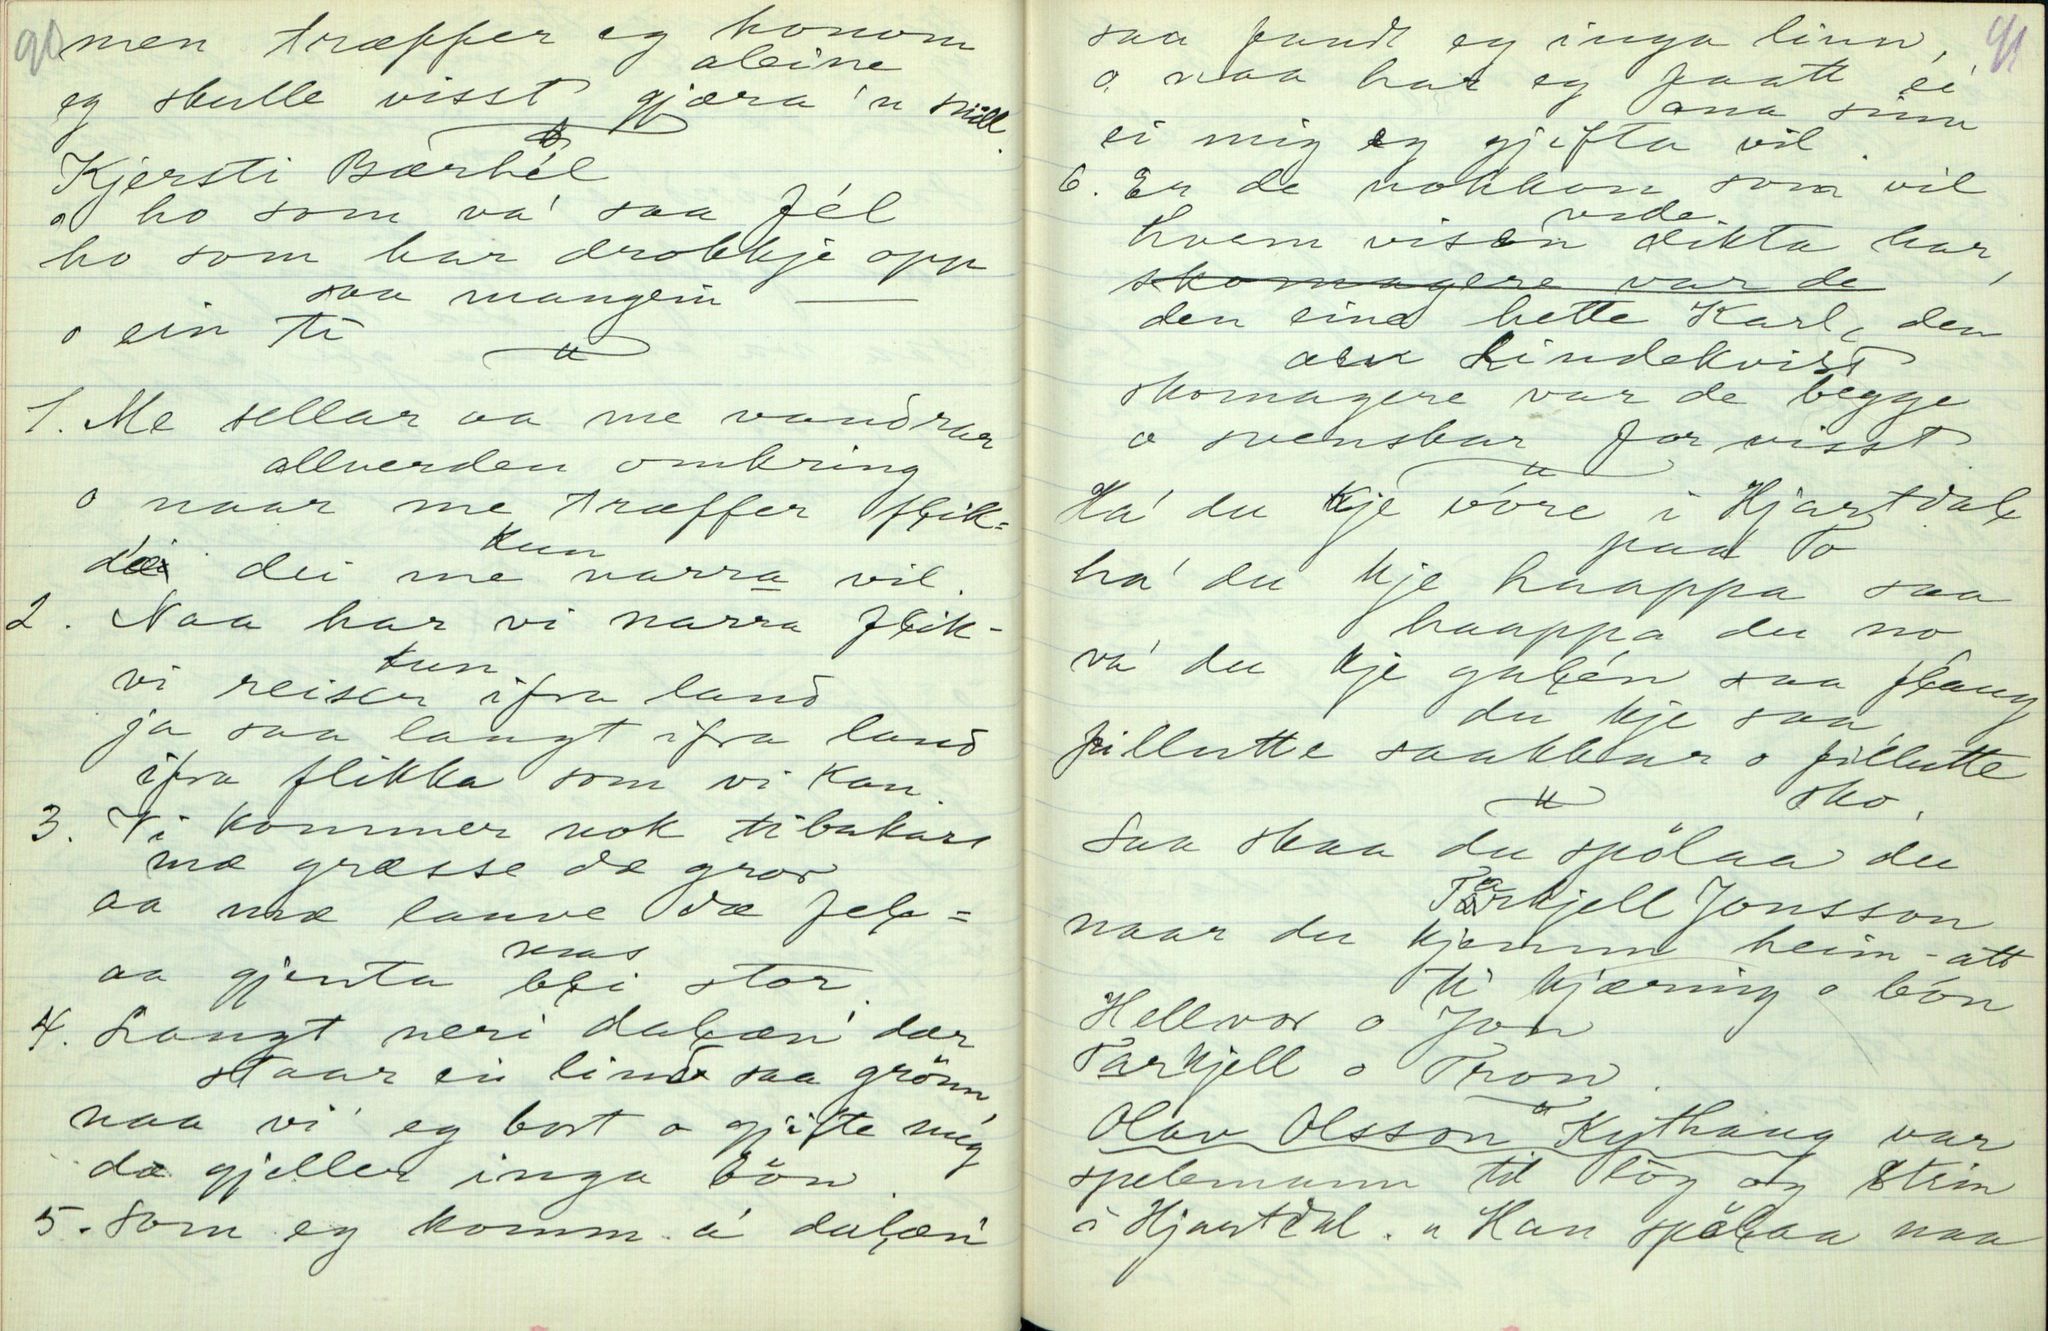 90
men træffer eg honom
aleine
eg skulle visst gjæra 'n snill.
Kjersti Bærhél
o ho som va' saa fél
ho som har drokkje opp
saa mangein —
o ein ti
1. Me sellar aa me vandrar
allverden omkring
o naar me træffer flik-
kun
dei me narra vil.
2. Naa har vi narra flik-
kun
vi reiser ifra land
ja saa langt ifra land
ifra flikka som vi kan.
3. Vi kommer nok tibakars
mæ græsse dæ gror
aa mæ lauve dæ fel-
nas
aa gjenta blei stor.
4. Langt neri dalæn' dær
staar ei lind saa grönn,
naa vi' eg bort o gjifte mig
da gjeller inga bön.
5. Som eg komm å dalæn'
91
saa fandt eg inga linn,
o naa har eg faatt ei
ana sinn
ei mig eg gjifta vil.
6. Er de nokkon som vil
vide
hvem visen dikta har,
skomagere var de
den eine hette Karl, den
aen Lindekvist
skomagere var de begge
o svenskar for visst.
Ha' du kje vóre i Hjartdal
paa To
ha' du kje haappa saa
haappa du no
va' du kje galén saa flaug
du kje saa
fillutte saakkar o fillutte
sko.
Saa skaa du spölaa du
Tarkjell Jonsson
naar du kjemm heim-att
ti kjæring o bón
Hellvor o Jon
Tarkjell o Tron.
Olav Olsson Kythaug var
spelemann til lög og Stim
i Hjartdal. " Han spölaa naa